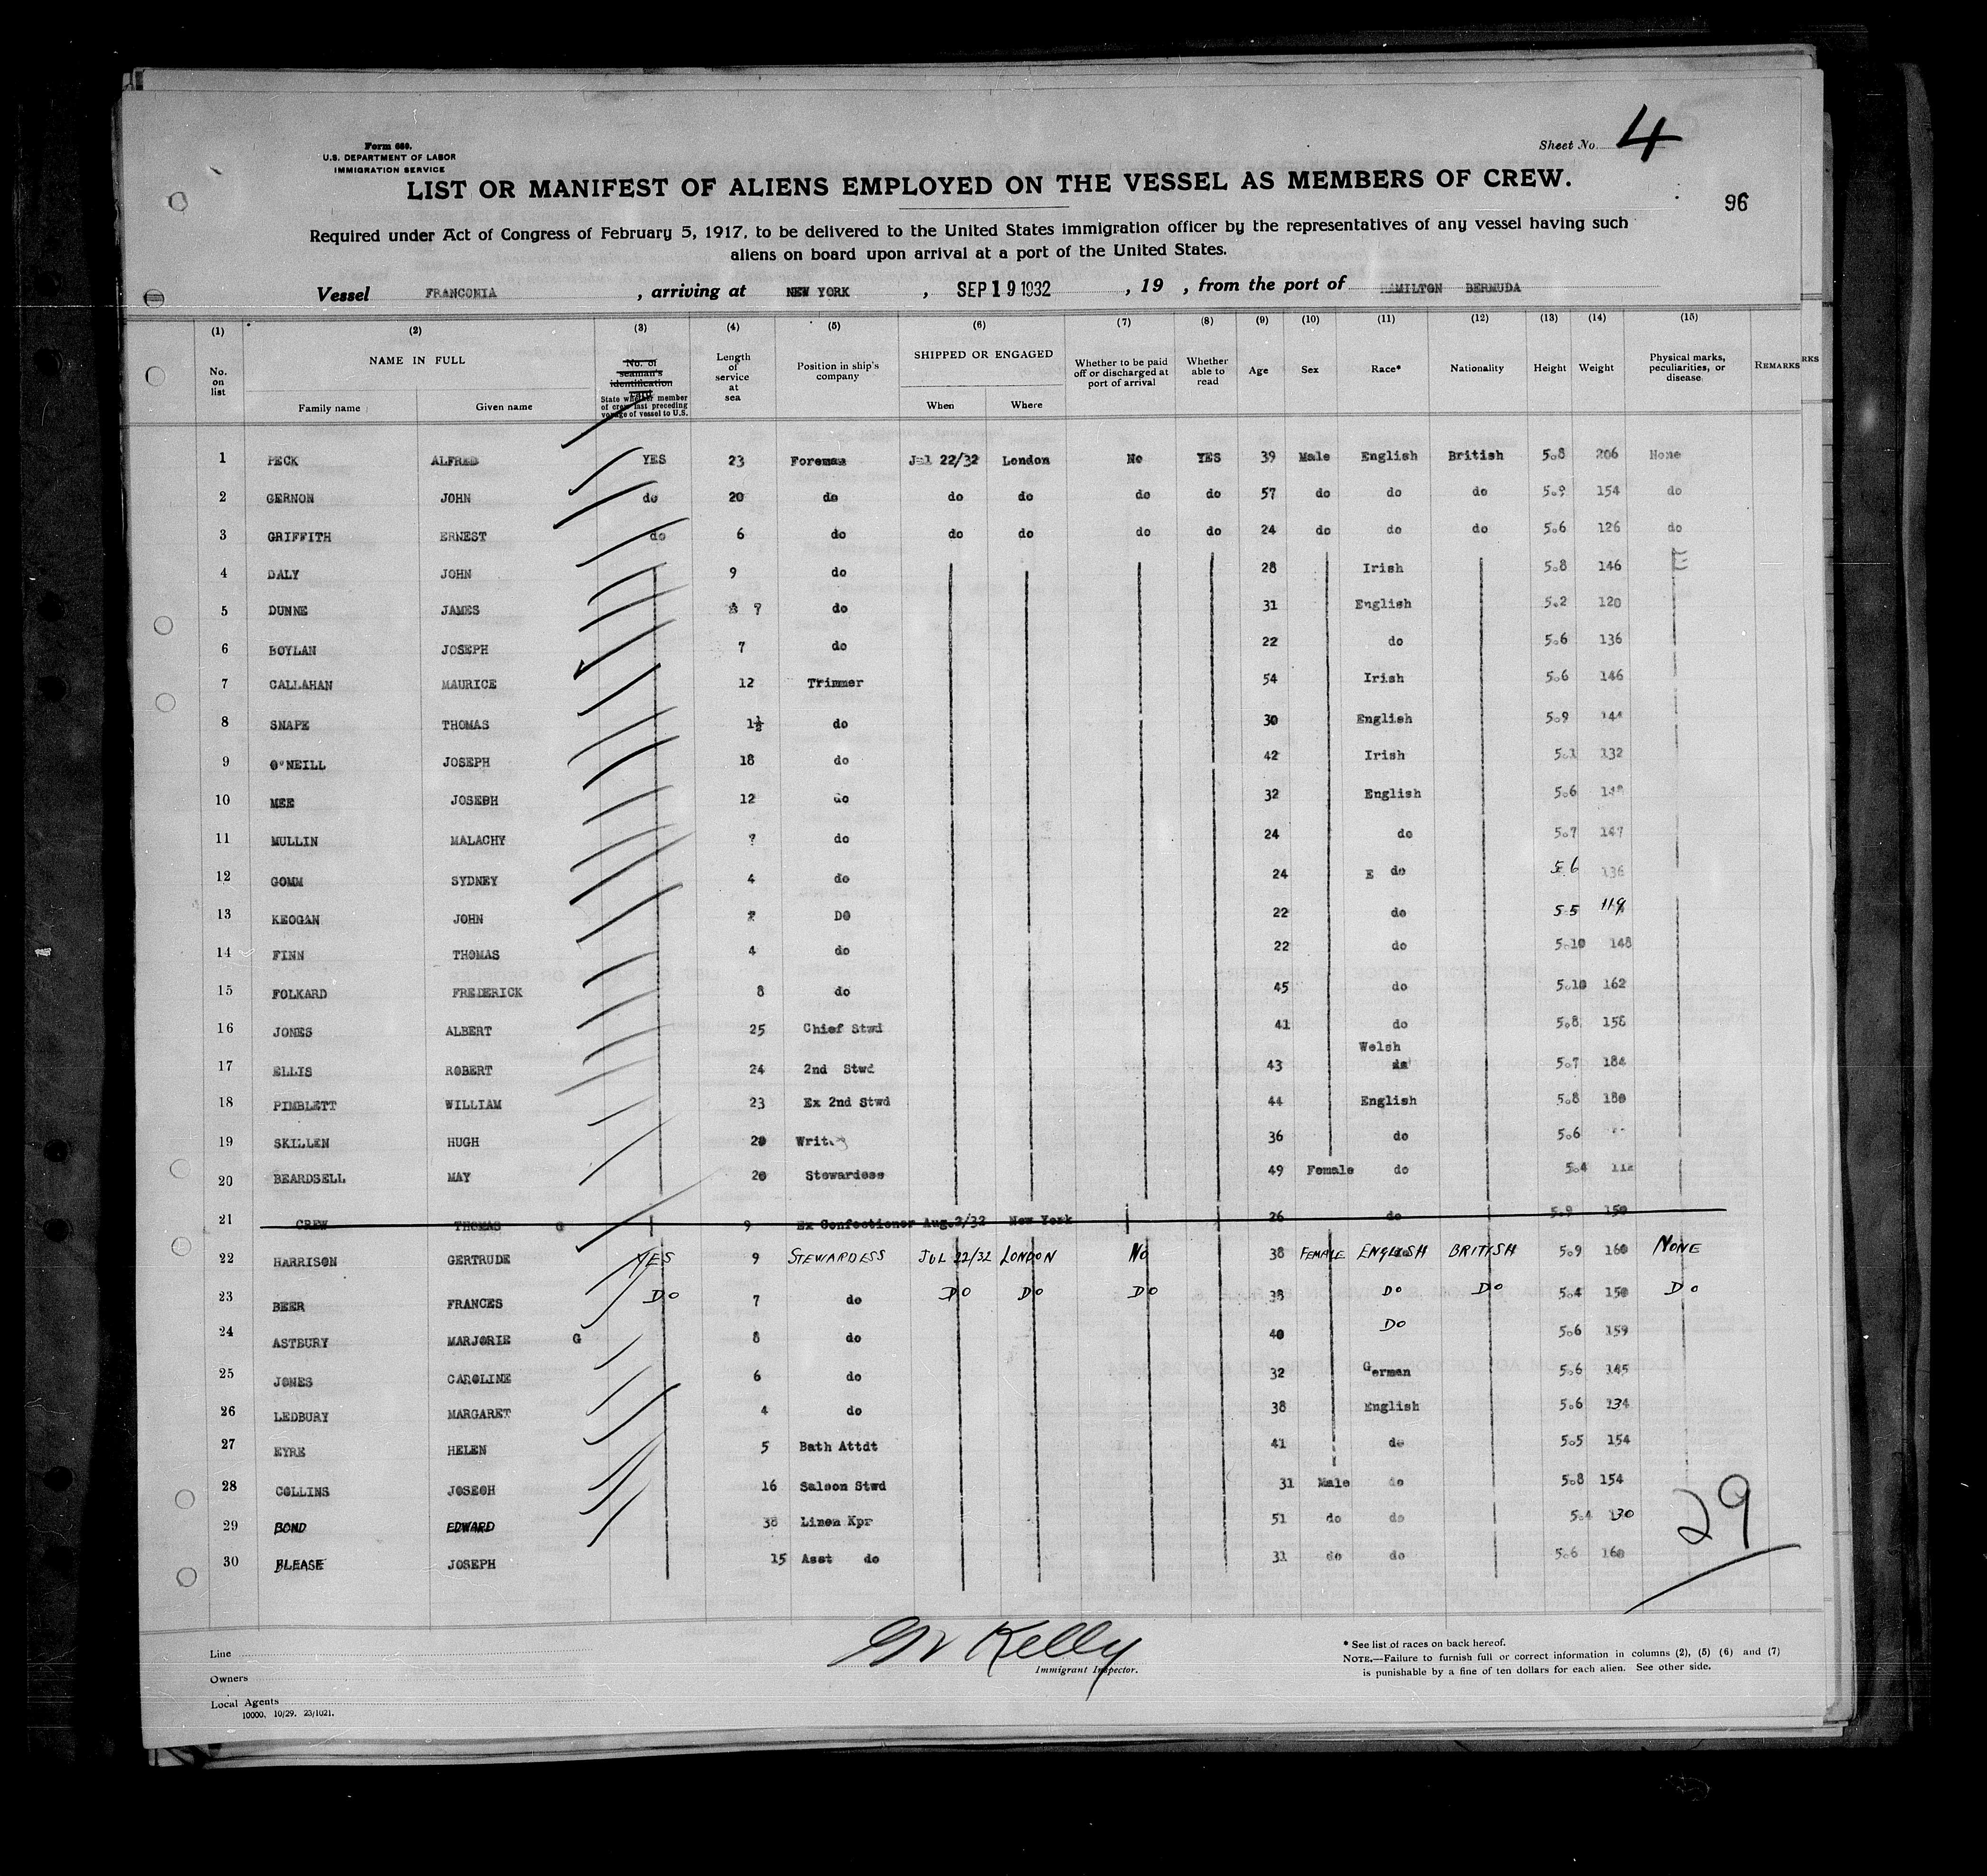 Form 680.
U.S. DEPARTMENT OF LABOR
IMMIGRATION SERVICE
Sheet No. 4
LIST OR MANIFEST OF ALIENS EMPLOYED ON THE VESSEL AS MEMBERS OF CREW.
96
Required under Act of Congress of February 5, 1917, to be delivered to the United States immigration officer by the representatives of any vessel having such
aliens on board upon arrival at a port of the United States.
Vessel FRANCONIA , arriving at NEW YORK , SEP 19 1932 , 19 , from the port of HAMILTON BERMUDA
(1) (2) (3) (4) (5) (6) (7) (8) (9) (10) (11) (12) (13) (14) (15)
No. on list NAME IN FULL Family name Given name No. of seaman's identification card State whether member of crew last preceding voyage of vessel to U.S. Length of service at sea Position in ship's company SHIPPED OR ENGAGED When Where Whether to be paid off or discharged at port of arrival Whether able to read Age Sex Race* Nationality Height Weight Physical marks, peculiarities, or disease REMARKS RKS
1 PECK ALFRED YES 23 Foreman Jul 22/32 London No YES 39 Male English British 5.8 206 None
2 GERNON JOHN do 20 do do do do do 57 do do do 5.9 154 do
3 GRIFFITH ERNEST do 6 do do do do do 24 do do do 5.6 126 do
4 DALY JOHN 9 do 28 Irish 5.8 146
5 DUNNE JAMES 7 do 31 English 5.2 120
6 BOYLAN JOSEPH 7 do 22 do 5.6 136
7 CALLAHAN MAURICE 12 Trimmer 54 Irish 5.6 146
8 SNAPE THOMAS 1½ do 30 English 5.9 144
9 O'NEILL JOSEPH 18 do 42 Irish 5.1 132
10 MEE JOSEPH 12 do 32 English 5.6
11 MULLIN MALACHY 7 do 24 do 5.7 147
12 GOMM SYDNEY 4 do 24 E do 5 6 136
13 KEOGAN JOHN DO 22 do 5 5 119
14 FINN THOMAS 4 do 22 do 5.10 148
15 FOLKARD FREDERICK 8 do 45 do 5.10 162
16 JONES ALBERT 25 Chief Stwd 41 do 5.8 158
17 ELLIS ROBERT 24 2nd Stwd 43 Welsh do 5.7 184
18 PIMBLETT WILLIAM 23 Ex 2nd Stwd 44 English 5.8 180
19 SKILLEN HUGH 20 36 do 5.6
20 BEARDSELL MAY 20 Stewardess 49 Female do 5.4 112
21 CREW THOMAS G 9 Ex Confectioner Aug.2/32 New York 26 do 5.9 150
22 HARRISON GERTRUDE YES 9 STEWARDESS JUL 22/32 LONDON No 38 FEMALE ENGLISH BRITISH 5.9 160 NONE
23 BEER FRANCES DO 7 do DO DO DO 38 DO DO 5.4 150 Do
24 ASTBURY MARJORIE G 8 do 40 DO 5.6 159
25 JONES CAROLINE 6 do 32 German 5.6 145
26 LEDBURY MARGARET 4 do 38 English 5.6 134
27 EYRE HELEN 5 Bath Attdt 41 do 5.5 154
28 COLLINS JOSEOH 16 Saloon Stwd 31 Male do 5.8 154
29 BOND EDWARD 38 Linen Kpr 51 do do 5.4 130
30 BLEASE JOSEPH 15 Asst do 31 do do 5.6 160
29
Kelly
Immigrant Inspector.
Line
Owners
Local Agents
10000, 10/29. 23/1021.
* See list of races on back hereof.
NOTE.—Failure to furnish full or correct information in columns (2), (5) (6) and (7)
is punishable by a fine of ten dollars for each alien. See other side.